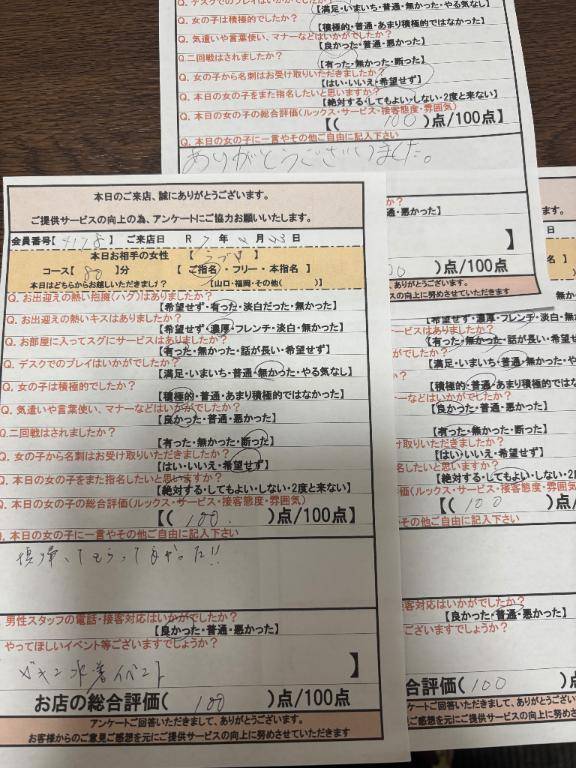 Q. デスクでのプレイはいかがでしたか?
【満足・いまいち・普通・無かった・やる気なし】
Q. 女の子は積極的でしたか?
【積極的・普通・あまり積極的ではなかった】
Q. 気遣いや言葉使い、マナーなどはいかがでしたか?
【良かった・普通・悪かった】
Q.二回戦はされましたか?
【有った・無かった・断った】
Q. 女の子から名刺はお受け取りいただきましたか?
【はい・いいえ・希望せず】
Q. 本日の女の子をまた指名したいと思いますか?
【絶対する・してもよい・しない・2度と来ない】
Q. 本日の女の子の総合評価(ルックス・サービス・接客態度・雰囲気)
【( 100 )点/100点】
Q. 本日の女の子に一言やその他ご自由に記入下さい
ありがとうございました。
本日のご来店、誠にありがとうございます。
ご提供サービスの向上の為、アンケートにご協力お願いいたします。
会員番号【 】 ご来店日 R 7 年 月 日
本日お相手の女性
コース【 80 】分 【ご指名・フリー・本指名】
本日はどちらからお越しいただきましたか? 【山口・福岡・その他( )】
Q. お出迎えの熱い抱擁(ハグ)はありましたか?
【希望せず・有った・淡白だった・無かった】
Q. お出迎えの熱いキスはありましたか?
【希望せず・濃厚・フレンチ・淡白・無かった】
Q. お部屋に入ってスグにサービスはありましたか?
【有った・無かった・話が長い・希望せず】
Q. デスクでのプレイはいかがでしたか?
【満足・いまいち・普通・無かった・やる気なし】
Q. 女の子は積極的でしたか?
【積極的・普通・あまり積極的ではなかった】
Q. 気遣いや言葉使い、マナーなどはいかがでしたか?
【良かった・普通・悪かった】
Q.二回戦はされましたか?
【有った・無かった・断った】
Q. 女の子から名刺はお受け取りいただきましたか?
【はい・いいえ・希望せず】
Q. 本日の女の子をまた指名したいと思いますか?
【絶対する・してもよい・しない・2度と来ない】
Q. 本日の女の子の総合評価(ルックス・サービス・接客態度・雰囲気)
【( 100 )点/100点】
Q. 本日の女の子に一言やその他ご自由に記入下さい
てもらって よかった!!
男性スタッフの電話・接客対応はいかがでしたか?
【良かった・普通・悪かった】
やってほしいイベント等ございますでしょうか?
水着イベント 】
お店の総合評価( 100 )点/100点
アンケートご回答いただきまして、ありがとうございます。
お客様からのご意見ご感想を元にご提供サービスの向上に努めさせていただきます
でしたか?
・普通・悪かった】
】
)点/100点
ありがとうございます。
ービスの向上に努めさせていただきます
無かった】
【希望せず・濃厚・フレンチ・淡白・無かった
ービスはありましたか?
【有った・無かった・話が長い・希望せず】
がでしたか?
【満足・いまいち・普通・無かった・やる気なし
か?
【積極的・普通・あまり積極的ではなかった】
ーなどはいかがでしたか?
【良かった・普通・悪かった】
【有った・無かった・断った】
け取りいただきましたか?
【はい・いいえ・希望せず】
名したいと思いますか?
【絶対する・してもよい・しない・2度と
価(ルックス・サービス・接客態度・雰囲気)
【( 100 )点/10
その他ご自由に記入下さい
客対応はいかがでしたか?
【良かった・普通・悪かった】
ございますでしょうか?
合評価( 100 )点/10
ートご回答いただきまして、ありがとうござい
ご感想を元にご提供サービスの向上に努めさせ